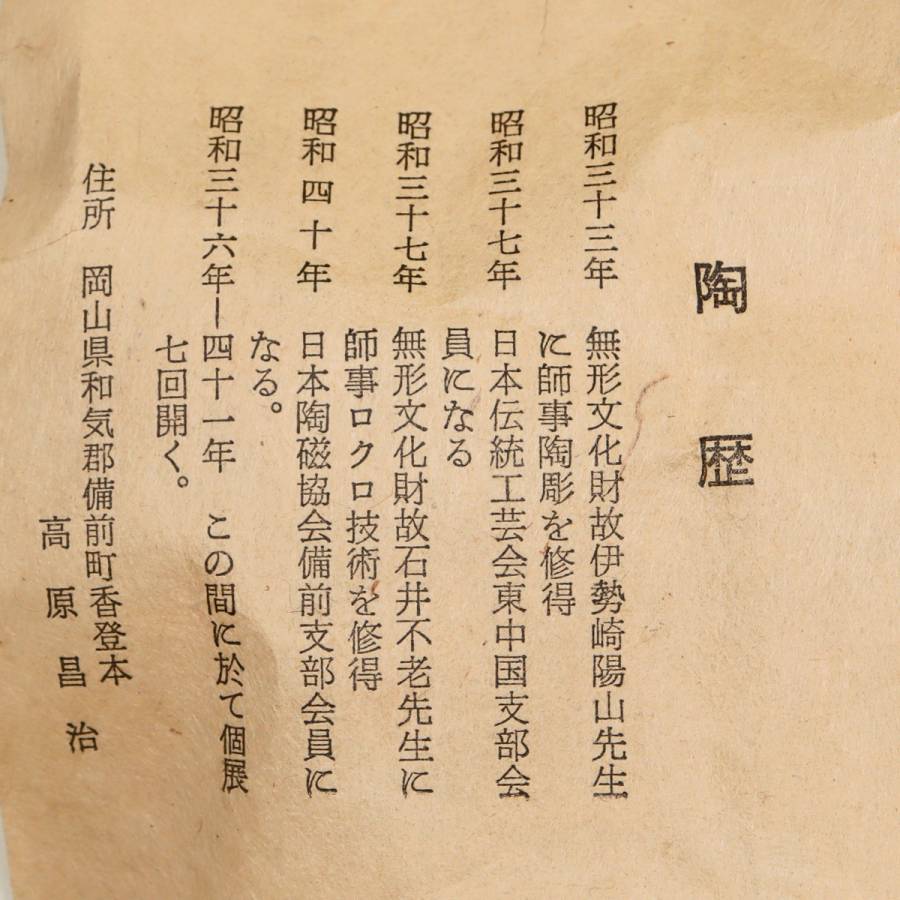 陶歴
昭和三十三年 無形文化財故伊勢崎陽山先生
に師事陶彫を修得
昭和三十七年 日本伝統工芸会東中国支部会
員になる
昭和三十七年 無形文化財故石井不老先生に
師事ロクロ技術を修得
昭和四十年 日本陶磁協会備前支部会員に
なる。
昭和三十六年―四十一年 この間に於て個展
七回開く。
住所 岡山県和気郡備前町香登本
高原昌治